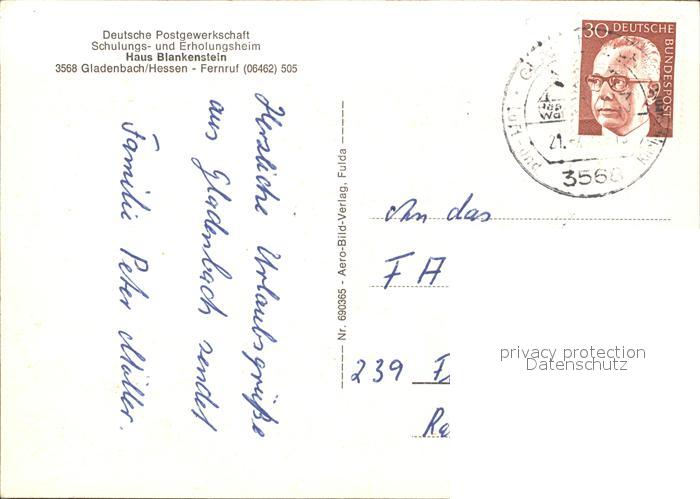 Deutsche Postgewerkschaft
Schulungs- und Erholungsheim
Haus Blankenstein
3568 Gladenbach/Hessen - Fernruf (06462) 505
Herzliche Urlaubsgrüße
aus Gladenbach sendet
Familie Peter Müller.
Nr. 690365 - Aero-Bild-Verlag, Fulda
30 DEUTSCHE BUNDESPOST
Luft- und
21.
3568
An das
FA
239
privacy protection
Datenschutz